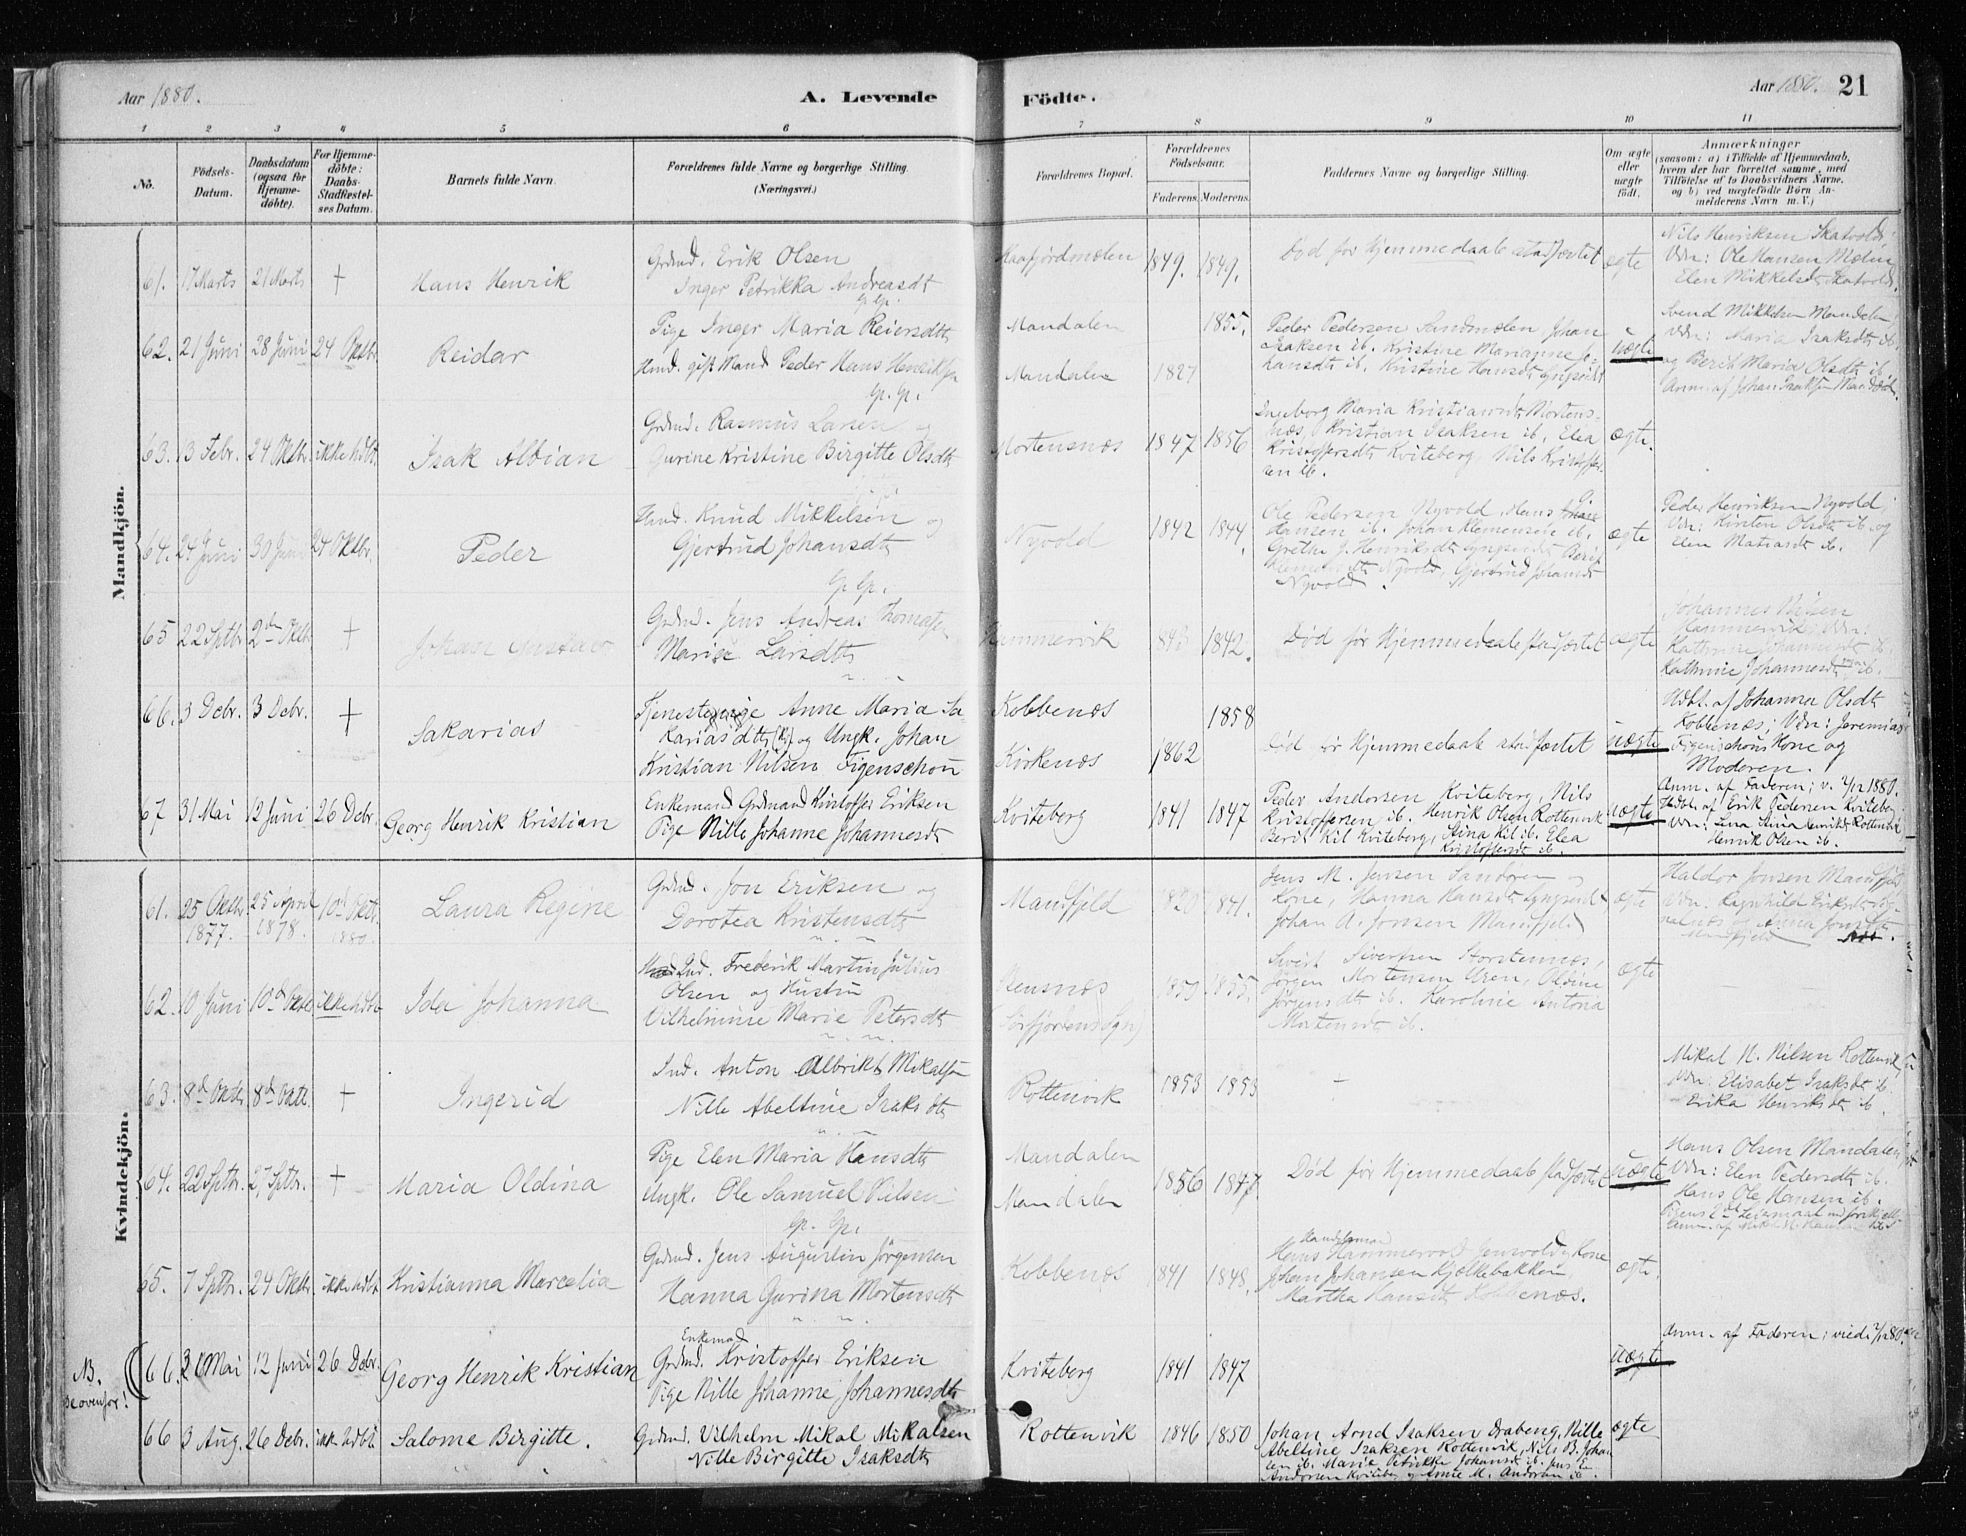 Aar 1880.
A. Levende
Födte.
Aar 1880.
21
1 2 3 4 5 6 7 8 9 10 11
No.
Födsels-Datum.
Daabsdatum (ogsaa for Hjemme-döbte).
For Hjemme-döbte: Daabs-Stadfæstel-ses Datum.
Barnets fulde Navn.
Forældrenes fulde Navne og borgerlige Stilling. (Næringsvei.)
Forældrenes Bopæl.
Forældrenes Födselsaar.
Faderens. Moderens.
Faddernes Navne og borgerlige Stilling.
Om ægte eller uægte födt.
Anmærkninger
(saasom: a) i Tilfælde af Hjemmedaab, hvem der har forrettet samme, med Tilföielse af to Daabsvidners Navne, og b) ved uægtefödte Börn An-melderens Navn m. V.)
Mandkjön.
61. 17 Marts 21 Marts † Hans Henrik
Grdmd. Erik Olsen
Inger Petrikka Andreasdtr
1849. 1849.
Död för Hjemmedaab stadfæstet
ægte
Nils Henriksen Skatvold;
Vdn: Ole Hansen
Elen Mikkelsdtr Skatvold.
62. 21 Juni 28 Juni 24 Oktbr. Reidar
Pige Inger Maria Reiersdtr
gift Mand Peder Hans Henriksen
Gp. Gp.
Mandalen
Mandalen
1827 1855.
Peder Pedersen Sandmælen Johan
Isaksen ib. Kristine Marianne Jo-
hansdtr ib. Kristine Hansdtr Lyngseidet
uægte
Svend Mikkelsen Mandalen
Vdn: Maria Isaksdtr ib.
og Berit Maria Olsdtr ib.
Anm. af Johan Isaksen
63. 13 Febr. 24 Oktbr. ikke hdbt. Isak Albian
Grdmd. Rasmus Larsen og
Gurine Kristine Birgitte Olsdtr
Mortensnæs
1847 1856
Ingeborg Maria Kristiansdtr Mortens-
næs, Kristian Isaksen ib. Elea
Kristoffersdtr Kviteberg, Nils Kristoffer-
sen ib.
ægte.
64. 24 Juni 30 Juni 24 Oktbr. Peder
Knud Mikkelsen og
Gjertrud Johansdtr
Gp. Gp.
Nyvold
1842 1844.
Ole Pedersen Nyvold, Hans
Hansen ib. Johan Klemensen ib.
Grethe J. Henriksdtr Lyngseidet Berit
Nyvold, Gjertrud Johansdtr
Nyvold.
ægte
Peder Henriksen Nyvold;
Vdn: Kirsten Olsdtr ib. og
Elen Matiasdtr ib.
65 22 Sptbr. 2den Oktbr. † Johan Gustav
Grdmd. Jens Andreas Thomasen
Marie Larsdtr
Hammervik
1843 1842.
Död för Hjemmedaab stadfæstet
ægte
Johannes Nilsen
Hammervik; Vdn:
Kathrine Johannesdtr ib.
Kathrine Johannesdtr ib.
66. 3 Debr. 3 Debr. † Sakarias
Tjenestepige Anne Maria Sa-
kariasdtr og Ungk. Johan
Kristian Nilsen Figenschou
Kobbenæs
Kirkenæs
1862 1858
Död för Hjemmedaab stadfæstet
uægte
Hdbt. af Johanna Olsdtr
Kobbenæs; Vdn: Jeremias
Figenschous Kone og
Moderen.
67 31 Mai 12 Juni 26 Debr. Georg Henrik Kristian
Enkemand Grdmand Kristoffer Eriksen
Pige Nille Johanne Johannesdtr
Kviteberg
1841 1847
Peder Andersen Kviteberg, Nils
Kristoffersen ib. Henrik Olsen Rottenvik
Berit Kil Kviteberg, Stina Kil ib. Elea
Kristoffersdtr ib.
uægte
Anm. af Faderen; v. 2/12 1880.
Hdbt. af Erik Pedersen Kviteberg
Vdn: Lina Stina Henriksdtr Rottenvik
Henrik Olsen ib.
Kvindekjön.
61. 25 Oktbr. 1877. 25 April 1878. 10d Oktbr. 1880. Laura Regine
Grdmd. Jon Eriksen og
Dorotea Kristensdtr
Mansfjeld
1841.
Jens M. Jensen Sandören og
Kone, Hanna Hansdtr Lyngseidet
Johan A. Jonsen Mansfjeld
ægte
Haldor Jonsen Mansfjeld
Vdn: Ragnhild Eriksdtr
og Anna Jonsdtr
Mansfjeld
62. 10 Juni 10de Oktbr. ikke hdbt. Ida Johanna
Ind. Frederik Martin Julius
Olsen og Hustru
Vilhelmine Marie Petersdtr
(Sörfjordens Sogn)
1855.
Sivert Sivertsen Storstennæs,
Jörgen Mortensen Uren, Oldine
Jörgensdtr ib. Karoline Antonia
Mortensdtr ib.
ægte
63. 8de Oktbr. 8de Oktbr. † Ingerid
Ind. Anton Albrikt Mikalsen
Nille Abeltine Isaksdtr
Rottenvik
1853 1853
Mikal N. Nilsen Rottenvik
Vdn: Elisabet Isaksdtr ib.
Erika Henriksdtr ib.
64. 22 Sptbr. 27 Sptbr. † Maria Oldina
Pige Elen Maria Hansdtr
Ungk. Ole Samuel Nilsen
Gp. Gp.
Mandalen
Mandalen
1856 1847
Död för Hjemmedaab stadfæstet
uægte
Hans Olsen Mandalen,
Vdn: Elen Pedersdtr ib.
Hans Ole Hansen ib.
Pigens 2det Leiermaal
65. 7 Sptbr. 24 Oktbr. ikke hdbt. Kristianna Marcelia
Grdmd. Jens Augustin Jörgensen
Hanna Gurina Mortensdtr
Kobbenæs
1841 1848.
Handelsmand
Hans Hammervold Jensvold og Kone
Johan Johansen Kjelkebakken
Martha Hansdtr Kobbenæs.
ægte.
NB.
Se ovenfor!
66. 31 Mai 12 Juni 26 Debr. Georg Henrik Kristian
Enkemand
Grdmd. Kristoffer Eriksen
Pige Nille Johanne Johannesdtr
Kviteberg
1841 1847
uægte
Anm. af Faderen; viedi 2/12 80.
66 3 Aug. 26 Debr. ikke hdbt. Salome Birgitte.
Grdmd. Vilhelm Mikal Mikalsen
Nille Birgitte Isaksdtr
Rottenvik
1846 1850
Johan Arnd Isaksen Draberg, Nille
Abeltine Isaksen Rottenvik, Nils B. Johan
sen ib. Marie Petrikke Johansdtr ib. Jens E.
Andersen Kviteberg og Anne M. Andersen ib.
ægte